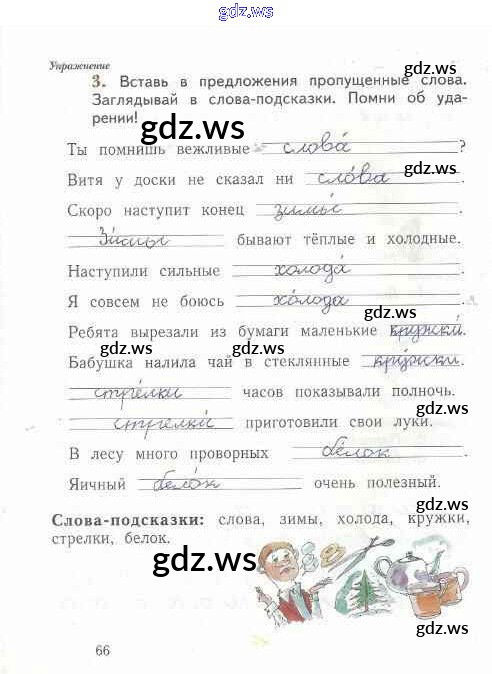 gdz.ws
Упражнение
3. Вставь в предложения пропущенные слова.
Заглядывай в слова-подсказки. Помни об уда-
рении!
gdz.ws
Ты помнишь вежливые слова́ ?
Витя у доски не сказал ни сло́ва .
Скоро наступит конец зимы́ .
gdz.ws
Зи́мы бывают тёплые и холодные.
Наступили сильные холода́ .
Я совсем не боюсь хо́лода .
Ребята вырезали из бумаги маленькие кружки́.
gdz.ws gdz.ws
Бабушка налила чай в стеклянные кру́жки .
стре́лки часов показывали полночь.
gdz.ws
стрелки́ приготовили свои луки.
В лесу много проворных бе́лок .
Яичный бело́к очень полезный.
gdz.ws
Слова-подсказки: слова, зимы, холода, кружки,
стрелки, белок.
gdz.ws
gdz.ws
gdz.ws
66